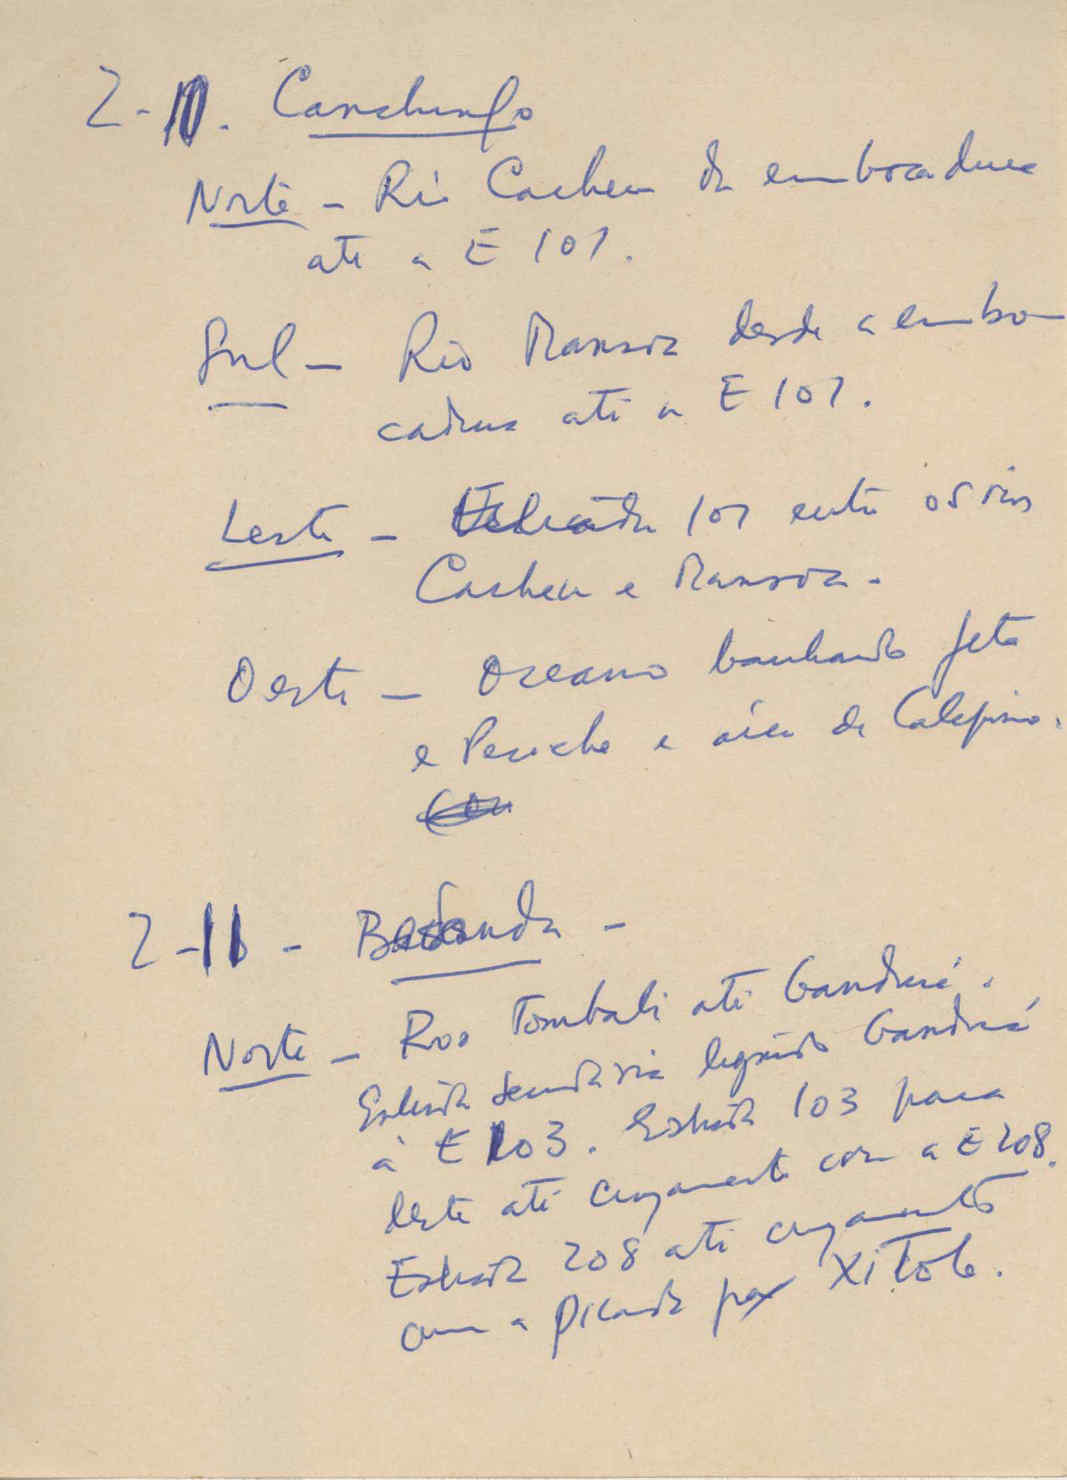 2-10. Canchungo
Norte - Rio Cacheu da embocadura
até a E 101.
Sul - Rio Mansoa desde a embo-
cadura até a E 101.
Leste - Estrada 101 entre os rios
Cacheu e Mansoa.
Oeste - Oceano banhando Jeta
e Pecixe e área de Calequisse.
2-11 - Bafanda -
Norte - Rio Tombali até Ganduá.
Estrada secundária ligando Ganduá
à E 103. Estrada 103 para
leste até cruzamento com a E 208.
Estrada 208 até cruzamento
com a picada para Xitole.